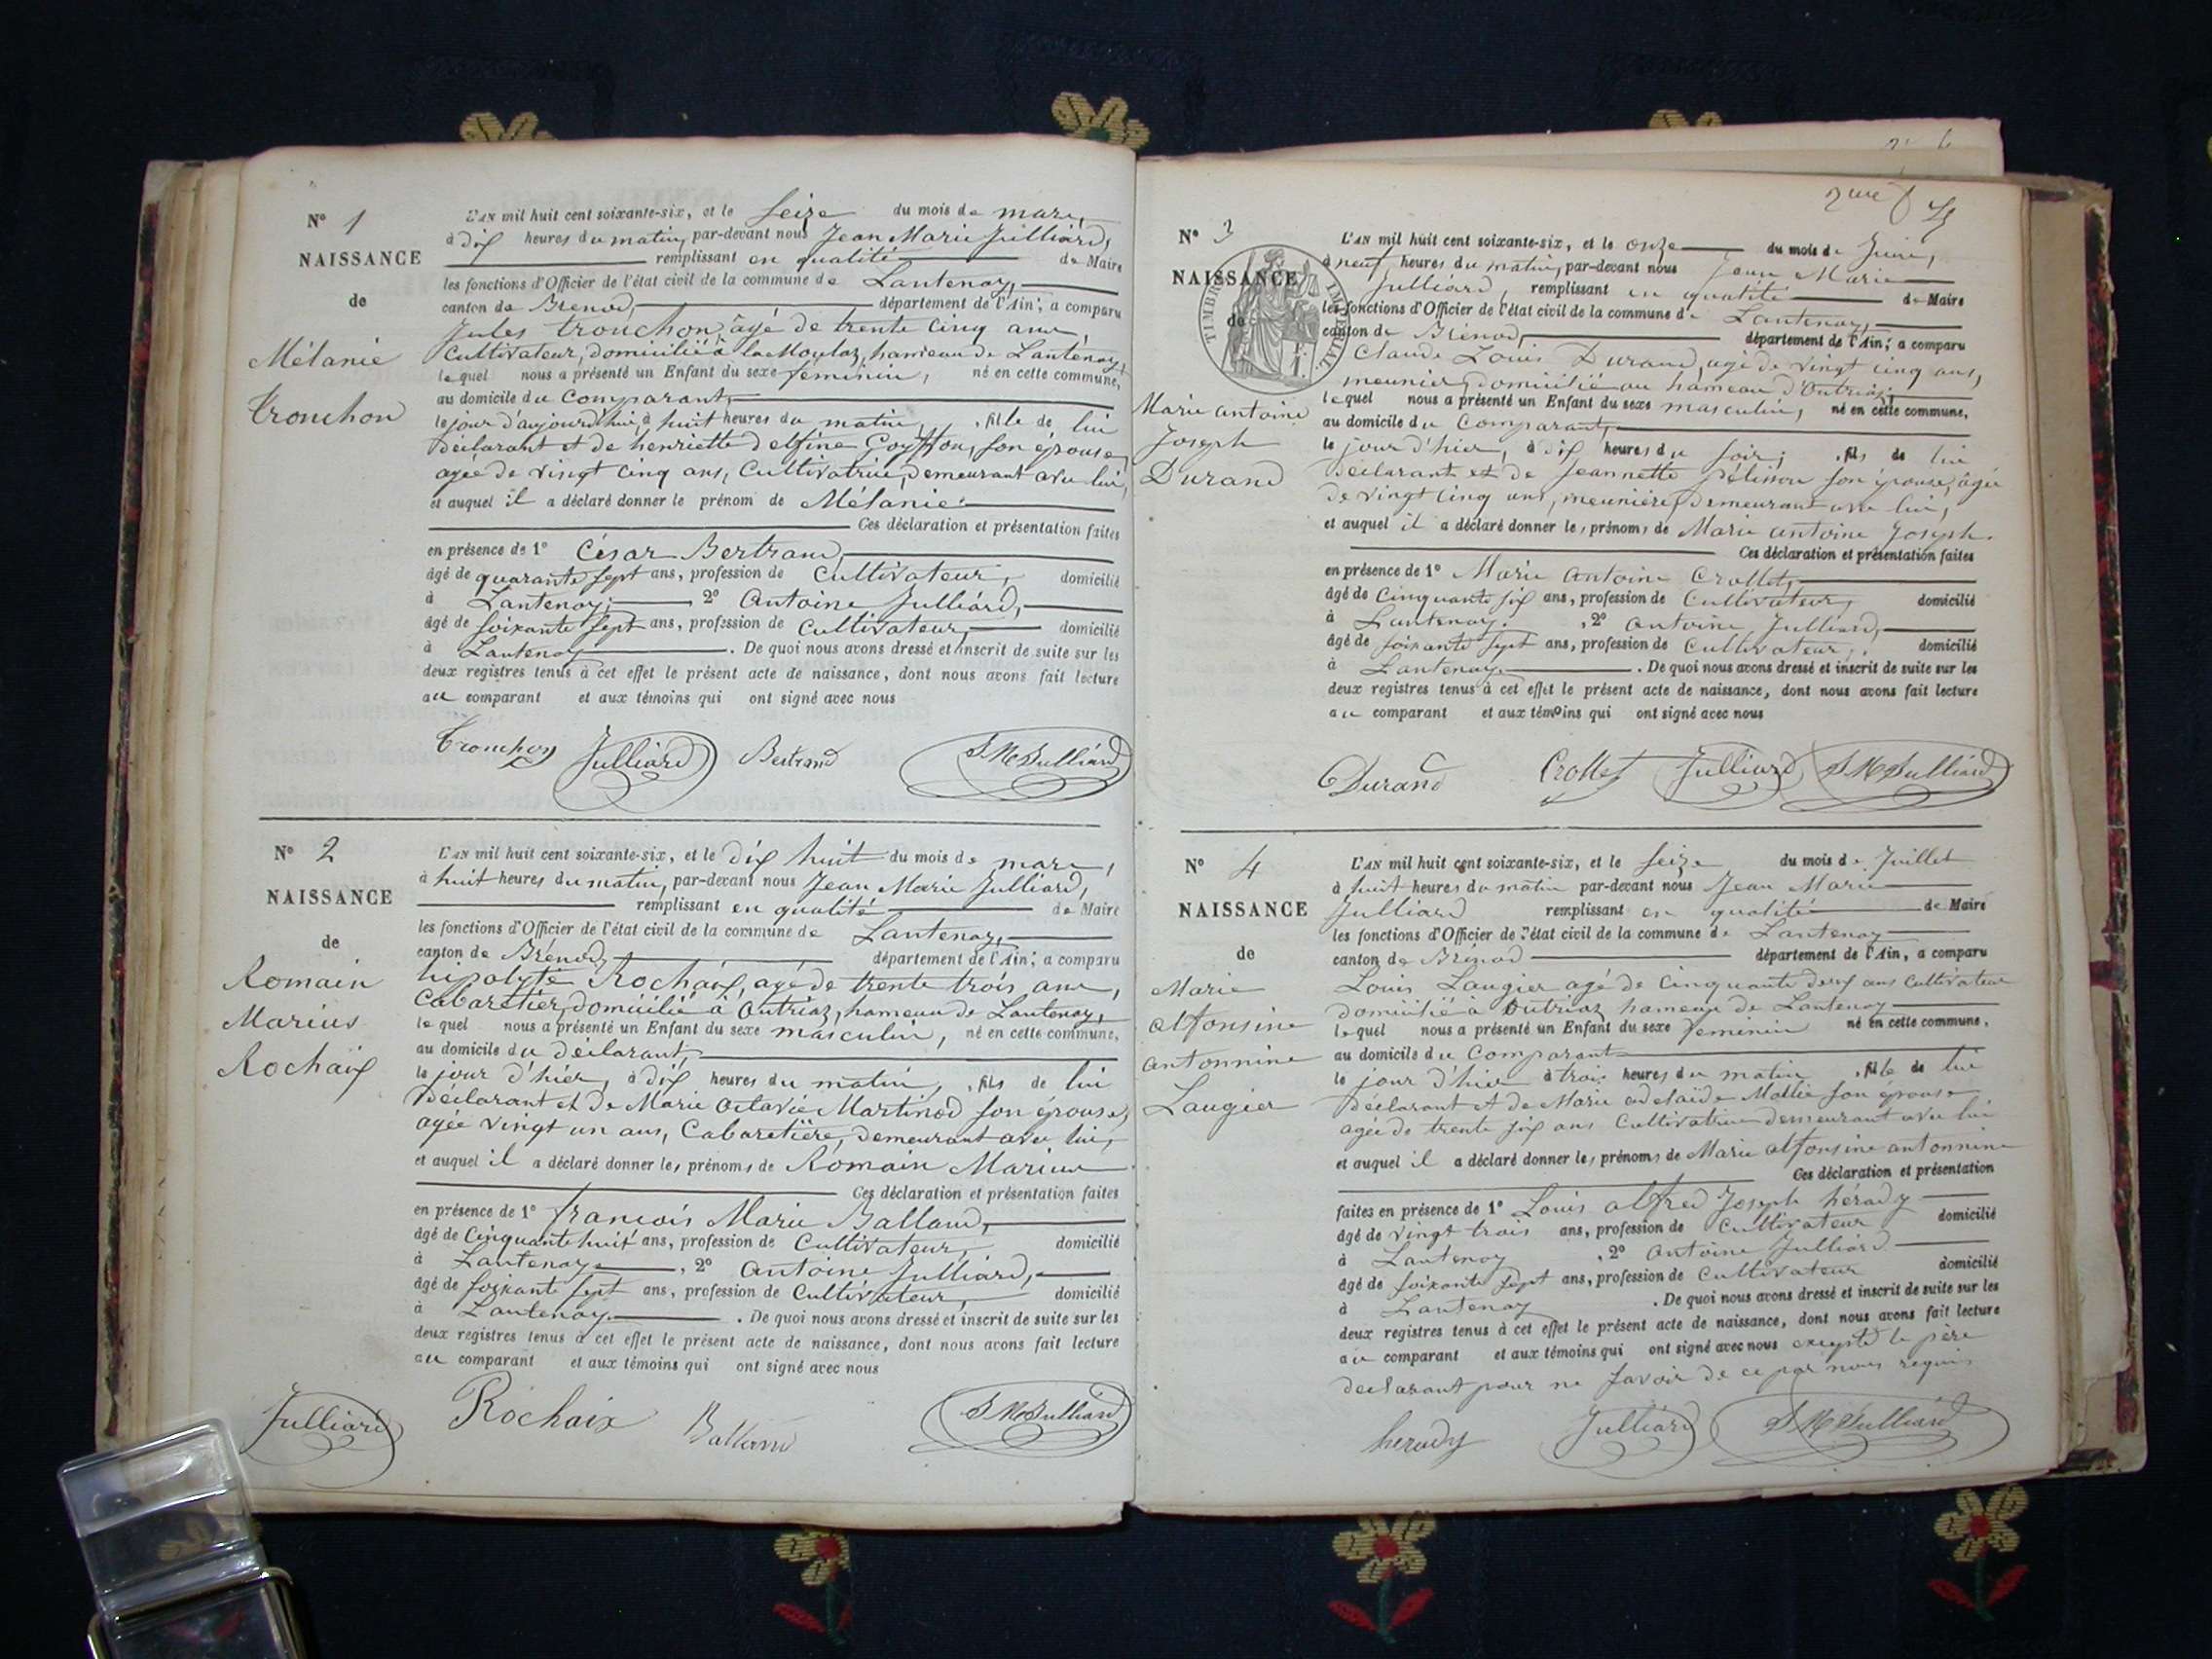 N° 1
NAISSANCE
de
Mélanie
Tronchon
L'AN mil huit cent soixante-six, et le seize du mois de mars,
à dix heures du matin, par-devant nous Jean Marie Julliard,
remplissant en qualité de Maire
les fonctions d'Officier de l'état civil de la commune de Lantenay,
canton de Brénod, département de l'Ain; a comparu
Jules tronchon, âgé de trente cinq ans,
Cultivateur, domicilié à la Moulaz, hameau de Lantenay,
lequel nous a présenté un Enfant du sexe féminin, né en cette commune,
au domicile du Comparant,
le jour d'aujourd'hui, à huit heures du matin, fille de lui
Déclarant et de henriette delfine Goyffon, son épouse,
agée de vingt cinq ans, Cultivatrice, demeurant avec lui,
et auquel il a déclaré donner le prénom de Mélanie
Ces déclaration et présentation faites
en présence de 1° César Bertrand,
âgé de quarante sept ans, profession de Cultivateur, domicilié
à Lantenay; 2° Antoine Julliard,
âgé de soixante sept ans, profession de Cultivateur, domicilié
à Lantenay. De quoi nous avons dressé et inscrit de suite sur les
deux registres tenus à cet effet le présent acte de naissance, dont nous avons fait lecture
au comparant et aux témoins qui ont signé avec nous
Tronchon Julliard Bertrand J M Julliard
N° 2
NAISSANCE
de
Romain
Marius
Rochaix
L'AN mil huit cent soixante-six, et le dix huit du mois de mars,
à huit heures du matin, par-devant nous Jean Marie Julliard,
remplissant en qualité de Maire
les fonctions d'Officier de l'état civil de la commune de Lantenay,
canton de Brénod, département de l'Ain; a comparu
hipolyte Rochaix, agé de trente trois ans,
Cabaretier, domicilié à Outriaz, hameau de Lantenay,
lequel nous a présenté un Enfant du sexe masculin, né en cette commune,
au domicile du déclarant,
le jour d'hier, à dix heures du matin, fils de lui
Déclarant et de Marie Octavie Martinod son épouse,
agée vingt un ans, Cabaretière, demeurant avec lui,
et auquel il a déclaré donner les prénoms de Romain Marius
Ces déclaration et présentation faites
en présence de 1° françois Marie Balland,
âgé de Cinquante huit ans, profession de Cultivateur, domicilié
à Lantenay, 2° Antoine Julliard,
âgé de soixante sept ans, profession de Cultivateur, domicilié
à Lantenay. De quoi nous avons dressé et inscrit de suite sur les
deux registres tenus à cet effet le présent acte de naissance, dont nous avons fait lecture
au comparant et aux témoins qui ont signé avec nous
Julliard Rochaix Balland J M Julliard
6
2me f
N° 3
NAISSANCE
de
TIMBRE IMPERIAL
Marie antoine
Joseph
Durand
L'AN mil huit cent soixante-six, et le onze du mois de Juin,
à neuf heures du matin, par-devant nous Jean Marie
Julliard, remplissant en qualité de Maire
les fonctions d'Officier de l'état civil de la commune de Lantenay,
canton de Brénod, département de l'Ain; a comparu
Claude Louis Durand, agé de vingt cinq ans,
meunier, domicilié au hameau d'Outriaz,
lequel nous a présenté un Enfant du sexe masculin, né en cette commune,
au domicile du Comparant,
le jour d'hier, à dix heures du soir, fils de lui
Déclarant et de Jeannette Pélisson son épouse, agée
de vingt cinq ans, meunière, demeurant avec lui,
et auquel il a déclaré donner les prénoms de Marie antoine Joseph.
Ces déclaration et présentation faites
en présence de 1° Marie Antoine Crollet,
âgé de Cinquante six ans, profession de Cultivateur, domicilié
à Lantenay, 2° Antoine Julliard,
âgé de soixante sept ans, profession de Cultivateur, domicilié
à Lantenay. De quoi nous avons dressé et inscrit de suite sur les
deux registres tenus à cet effet le présent acte de naissance, dont nous avons fait lecture
au comparant et aux témoins qui ont signé avec nous
Durand Crollet Julliard J M Julliard
N° 4
NAISSANCE
de
Marie
alfonsine
antonnine
Laugier
L'AN mil huit cent soixante-six, et le seize du mois de Juillet
à huit heures du matin par-devant nous Jean Marie
Julliard remplissant en qualité de Maire
les fonctions d'Officier de l'état civil de la commune de Lantenay
canton de Brénod département de l'Ain, a comparu
Louis Laugier agé de Cinquante deux ans Cultivateur
domicilié à Outriaz hameau de Lantenay
lequel nous a présenté un Enfant du sexe féminin né en cette commune,
au domicile du Comparant
le jour d'hier à trois heures du matin fille de lui
Déclarant et de Marie adelaïde Mollie son épouse
agée de trente six ans Cultivatrice demeurant avec lui
et auquel il a déclaré donner les prénoms de Marie alfonsine antonnine
Ces déclaration et présentation
faites en présence de 1° Louis alfred Joseph hérady
âgé de vingt trois ans, profession de Cultivateur domicilié
à Lantenay, 2° Antoine Julliard
âgé de soixante sept ans, profession de Cultivateur domicilié
à Lantenay. De quoi nous avons dressé et inscrit de suite sur les
deux registres tenus à cet effet le présent acte de naissance, dont nous avons fait lecture
au comparant et aux témoins qui ont signé avec nous excepté le père
declarant pour ne savoir de ce par nous requis
herady Julliard J M Julliard